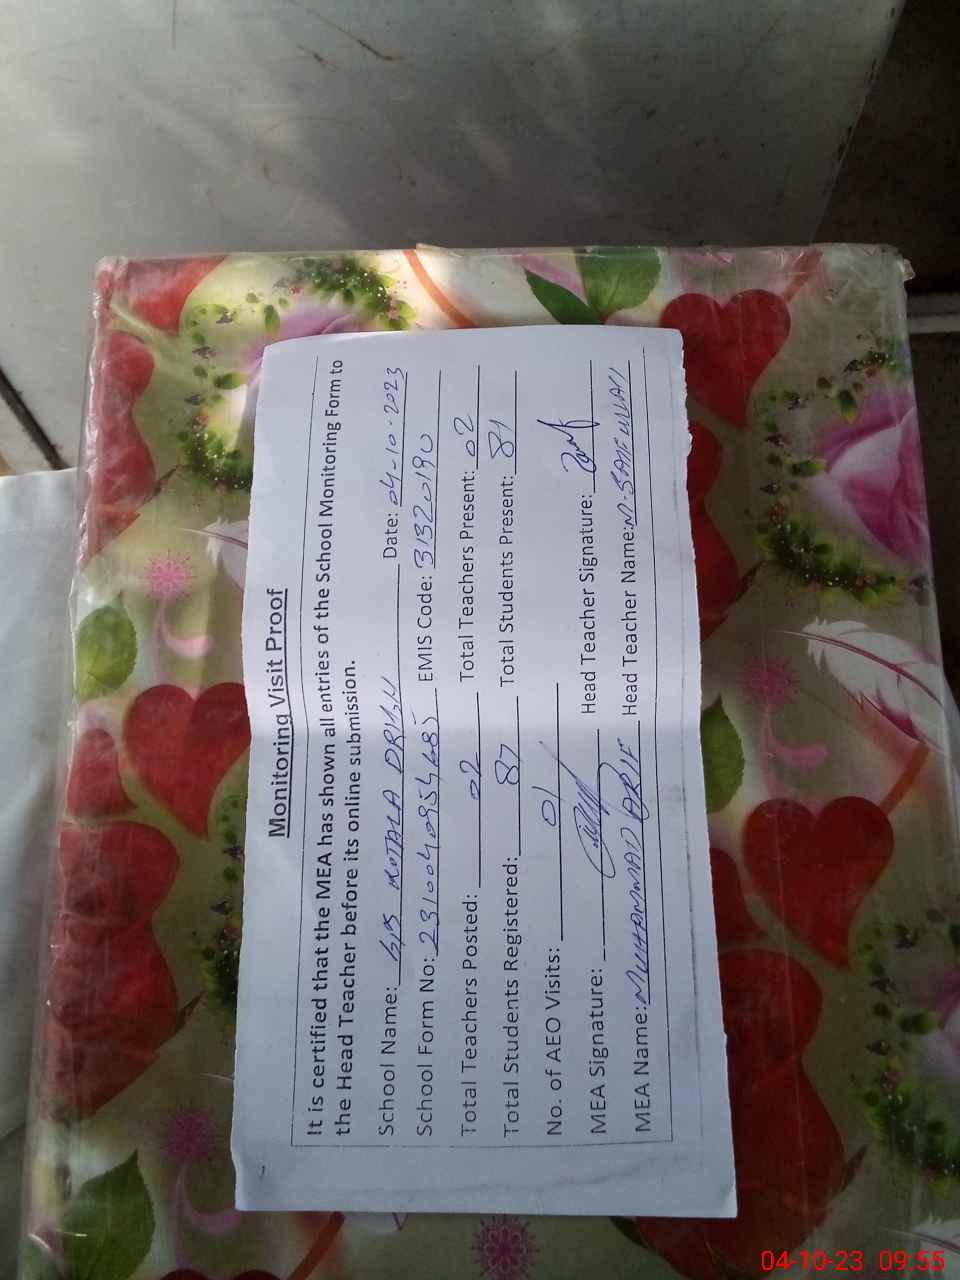 Monitoring Visit Proof
It is certified that the MEA has shown all entries of the School Monitoring Form to
the Head Teacher before its online submission.
School Name: Date: 04-10-2023
School Form No: EMIS Code: 31320190
Total Teachers Posted: 02 Total Teachers Present: 02
Total Students Registered: 87 Total Students Present: 81
No. of AEO Visits: 01
MEA Signature: Head Teacher Signature:
MEA Name: MUHAMMAD ARIF Head Teacher Name:
04-10-23 09:55